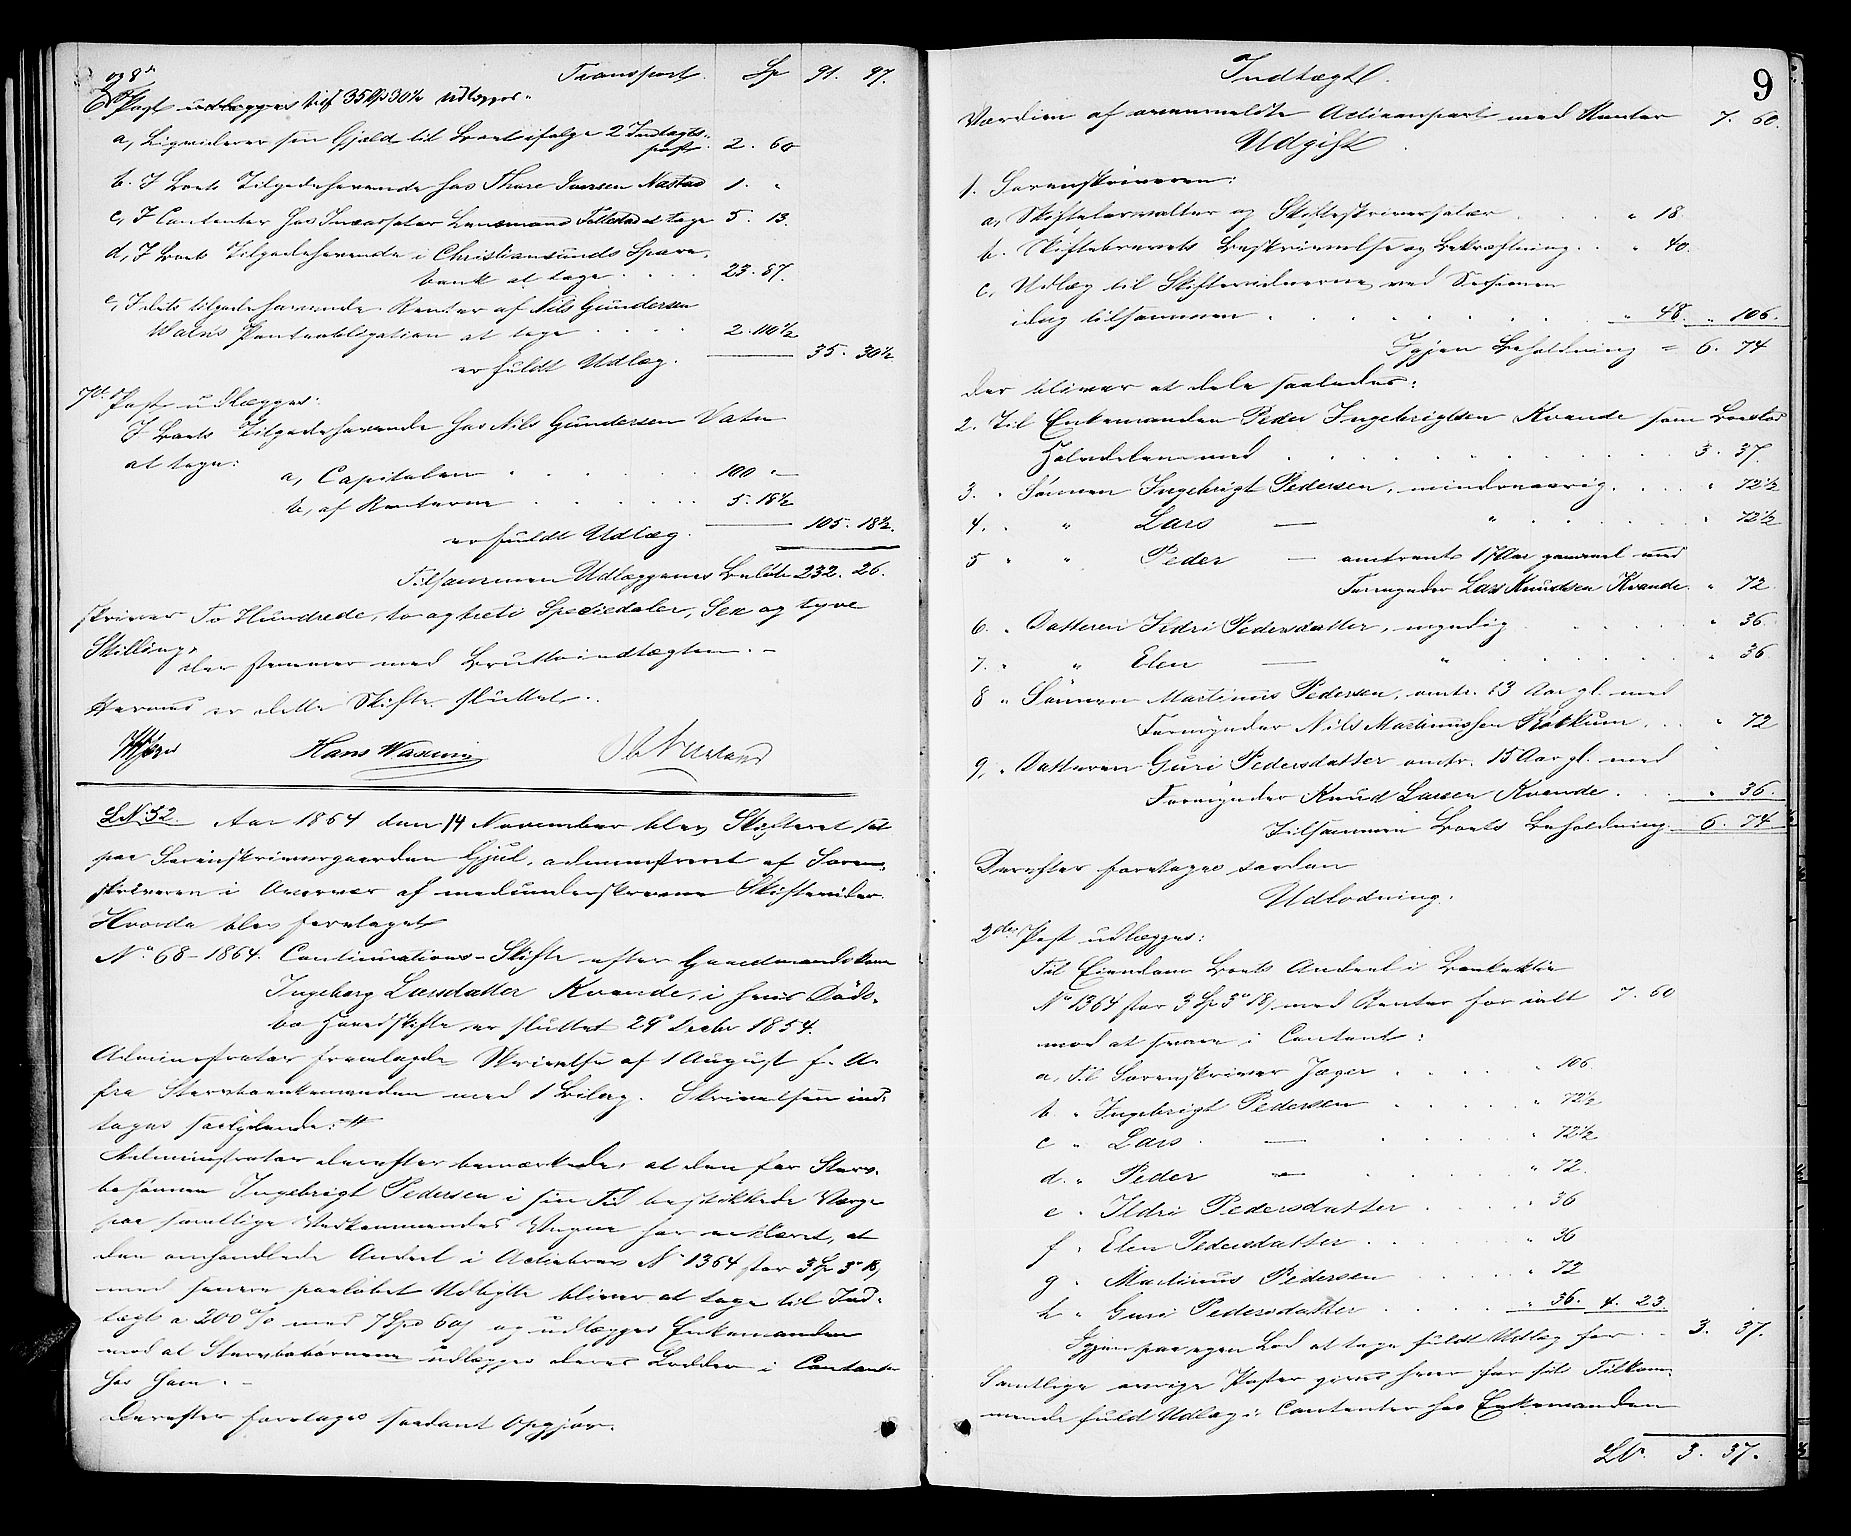 Transport. Sp 91. 97.
og 8de
6te Post udlægges tilf 35 Sp 30½ udlægges.
a, Liqviderer sin Gjæld til Boet ifølge 2 Indtægts-
post. 2. 60
b. I Boets Tilgodehavende hos Thore Iversen Nastad 1. "
c, I Contanter hos Incassator Lensmand Follestad at tage 5. 13.
d, I Boets Tilgodehavende i Christiansunds Spare-
bank at tage . . . . 23. 87.
e, I dets tilgodehavende Renter af Nils Gundersen
Vatns Panteobligation at tage . . . . 2. 110½
er fuldt Udlæg. 35. 30½
7de Post udlægges:
I Boets Tilgodehavende hos Nils Gundersen Vatn
at tage:
a, Capitalen . . . . 100 "
b, af Renterne . . . . 5. 18½
er fuldt Udlæg. 105. 18½.
Tilsammen Udlæggenes Beløb 232. 26.
skriver To Hundrede, to og treti Speciedaler, Sex og tyve
Skilling,
der stemmer med Bruttoindtægten. –
Hermed er dette Skifte sluttet.
Jæger Hans Waseng
L. N. 52. Aar 1864 den 14 November blev Skifteret sat
paa Sorenskrivergaarden Gjul, administreret af Soren-
skriveren i Overvær af medunderskrevne Skiftevidner.
Hvorda blev foretaget
No 68 – 1864. Continuations-Skifte efter Gaardmandskone
Ingeborg Larsdatter Kvande, i hvis Døds-
bo Hovedskifte er sluttet 29 Decbr 1854.
Administrator fremlagde Skrivelse af 1 August f. A.
fra Stervboenkemanden med 1 Bilag. Skrivelsen ind-
tages saalydende:
Administrator derefter bemærkede, at den for Sterv-
bosønnen Ingebrigt Pedersen i sin Tid beskikkede Værge
paa samtlige Vedkommendes Vegne har erklæret, at
den omhandlede Andeel i Actiebrev No 1364 stor 3 Sp 3 18
med senere paaløbet Udbytte bliver at tage til Ind-
tægt a 200 % med 7 Spd 60 og udlægges Enkemanden
mod at Stervbobørnene udlægges deres Lodder i Contanter
hos ham. –
Derefter foretages saadant Opgjør.
9
Indtægt.
Værdien af ovenmeldte Actieanpart med Renter 7. 60.
Udgift.
1. Sorenskriveren:
a, Skifteforvalter og Skifteskriversalær . . . . " 18.
b. Skiftebrevets Beskrivelse og Bekræftning. . . " 40.
c, Udlæg til Skiftevidnerne ved Sessionen
idag tilsammen . . . . " 48. " 106.
Igjen Beholdning = 6. 74
der bliver at dele saaledes:
2. Til Enkemanden Peder Ingebrigtsen Kvande som Boeslod
Halvdelen med . . . . 3. 37.
3. " Sønnen Ingebrigt Pedersen, mindreaarig. . . " 72½
4. " " Lars — " . . . . " 72½
5 " " Peder — omtrent 17 Aar gammel med
Formynder Lars Knudsen Kvande. " 72
6. " Datteren Ildri Pedersdatter, myndig . . . . " 36.
7. " " Elen — " . . . . " 36
8 " Sønnen Martinus Pedersen, omtr. 13 Aar gl. med
Formynder Nils Martinussen Røkkum. . . " 72
9, " Datteren Guri Pedersdatter omtr. 15 Aar gl. med
Formynder Knud Larsen Kvande. . . . " 36.
Tilsammen Boets Beholdning. 6. 74
Derefter foretages saadan
Udlodning.
2den Post udlægges:
Til Eiendom Boets Andeel i Bankaktie
No 1364 stor 3 Sp 3 18, med Renter for ialt 7. 60
mod at svare i Contant:
a, Til Sorenskriver Jæger . . . . " 106
b. " Ingebrigt Pedersen . . . . " 72½
c " Lars — . . . . " 72½
d. " Peder — . . . . " 72.
e " Ildri Pedersdatter . . . . " 36
f " Elen Pedersdatter . . . . " 36
g " Martinus Pedersen . . . . " 72
h " Guri Pedersdatter . . . . " 36. 4. 23
Igjen paa egen Lod at tage fuldt Udlæg for . . 3. 37.
Samtlige øvrige Poster gives hver for sit Tilkom-
mende fuld Udlæg i Contanter hos Enkemanden
Lbr. 3. 37.